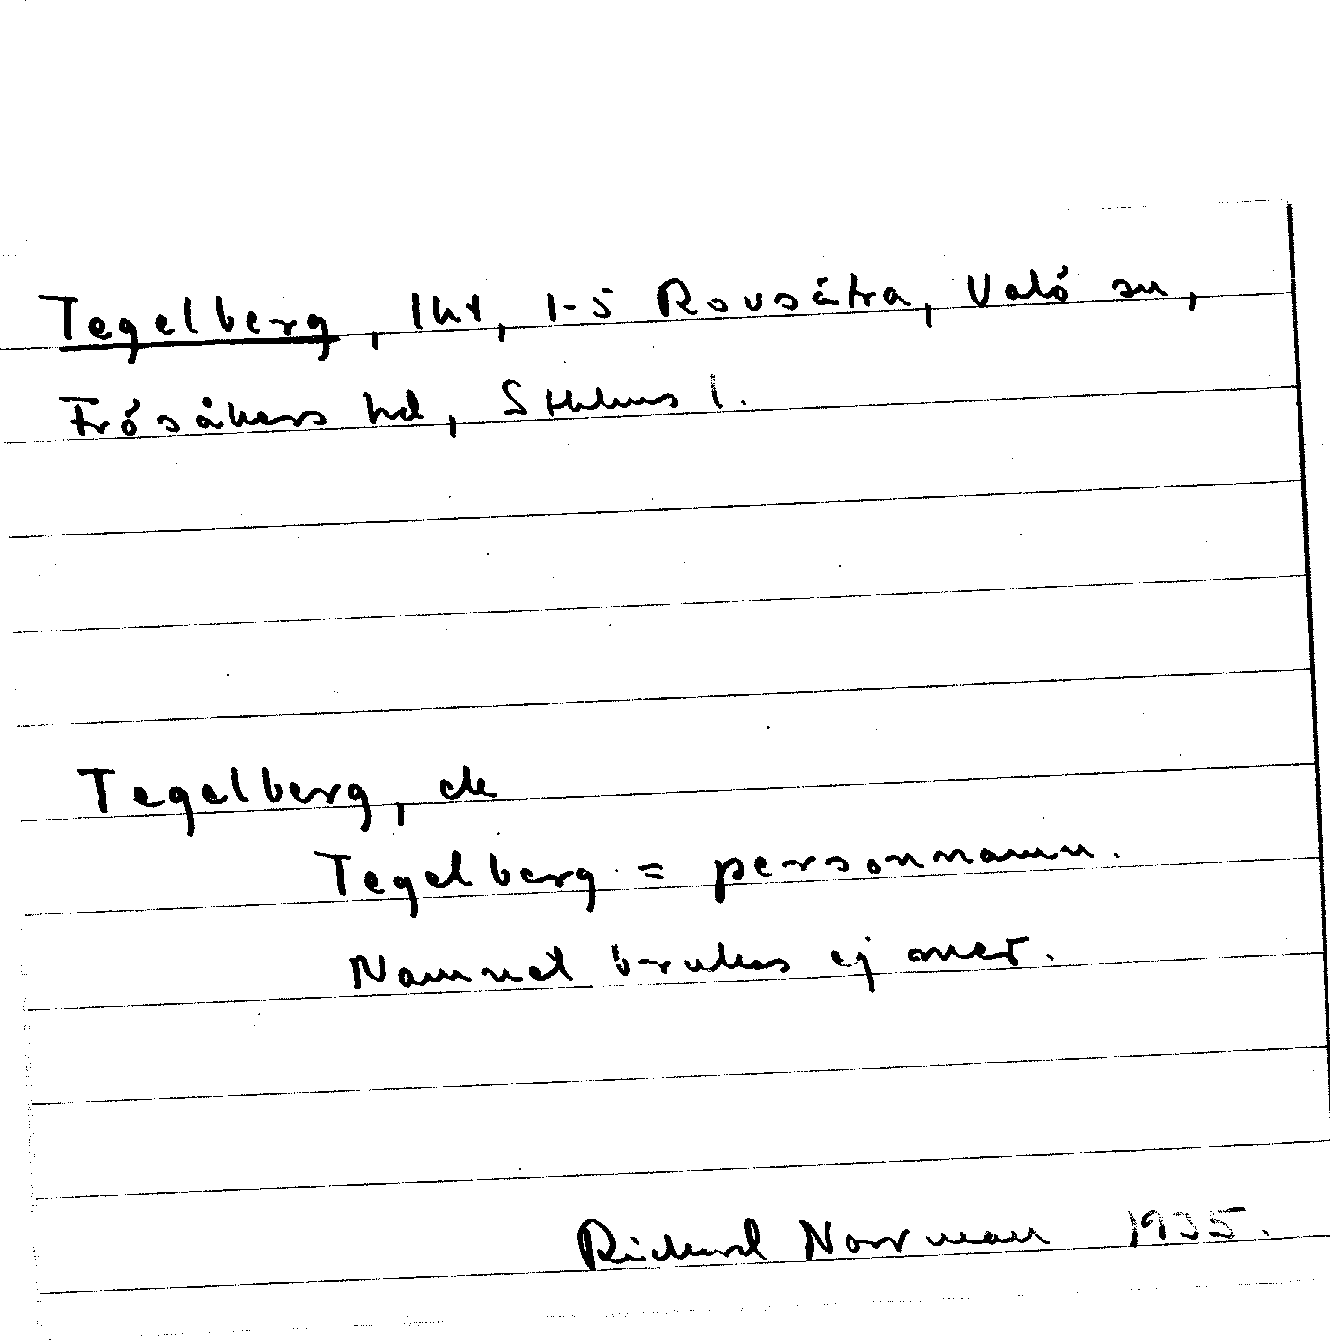 Tegelberg, lht, 1-5 Rovsätra, Valö sn,
Frösåkers hd, Sthlms l.
Tegelberg, de
Tegelberg = personnamn.
Namnet brukas ej mer.
Richard Norrman 1935.